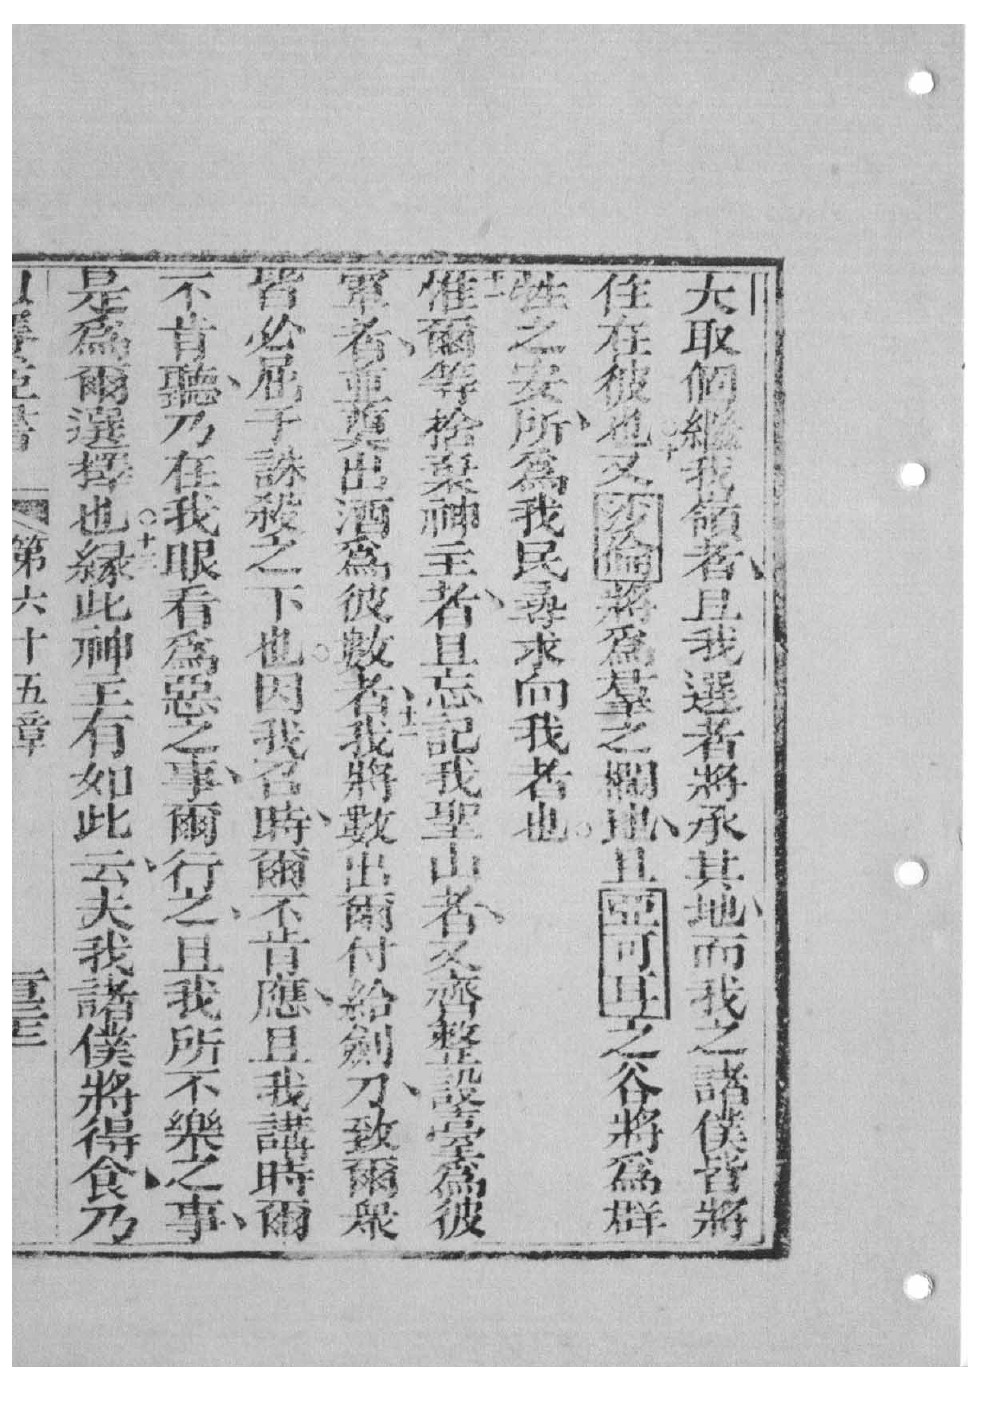 大取個繼我嶺者、且我選者將承其地、而我之諸僕皆將
住在彼也。十又沙倫將為羣之欄地、且亞可耳之谷將為群
牲之安所、為我民尋求向我者也。
十一惟爾等捨棄神主者、且忘記我聖山者、又齊整設臺為彼
軍者、並奠出酒為彼數者、十二我將數出爾付給劍刀、致爾衆
皆必屈于誅殺之下也。因我召時、爾不肯應、且我講時爾
不肯聽、乃在我眼看為惡之事、爾行之、且我所不樂之事、
是為爾選擇也。十三緣此神主有如此云、夫我諸僕將得食、乃
第六十五章